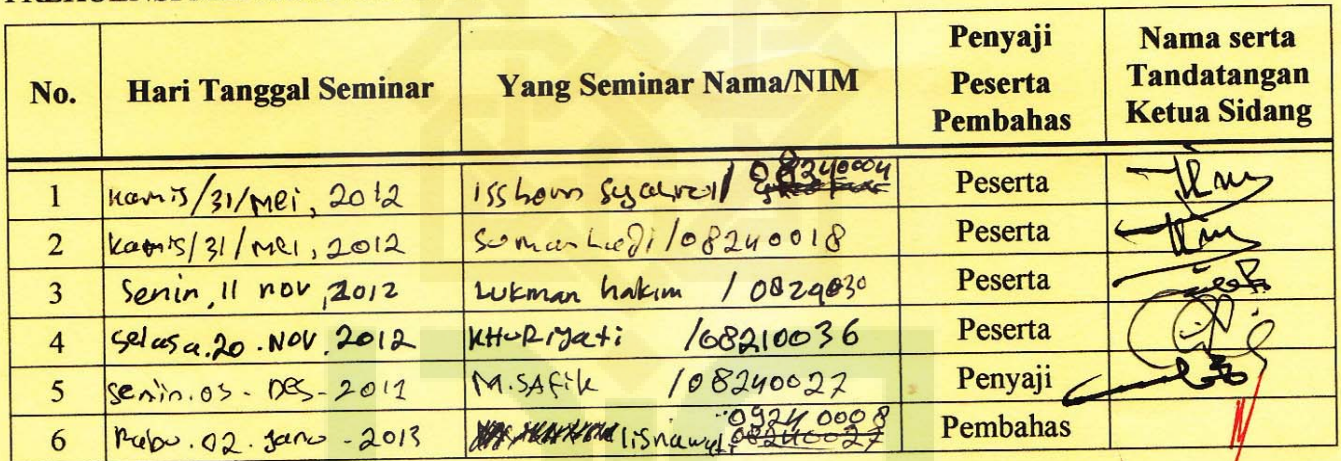 No. Hari Tanggal Seminar Yang Seminar Nama/NIM Penyaji Peserta Pembahas Nama serta Tandatangan Ketua Sidang
1 Kamis/31/Mei, 2012 / 08240004 Peserta
2 Kamis/31/Mei, 2012 Sumarhadi/08240018 Peserta
3 Senin, 11 nov, 2012 Lukman hakim / 0824030 Peserta
4 Selasa. 20. NOV. 2012 KHURiyati /08210036 Peserta
5 Senin. 03 - DES - 2012 M. SAfik /08240027 Penyaji
6 Rabu. 02. Janu - 2013 lisnawati 09240008 Pembahas